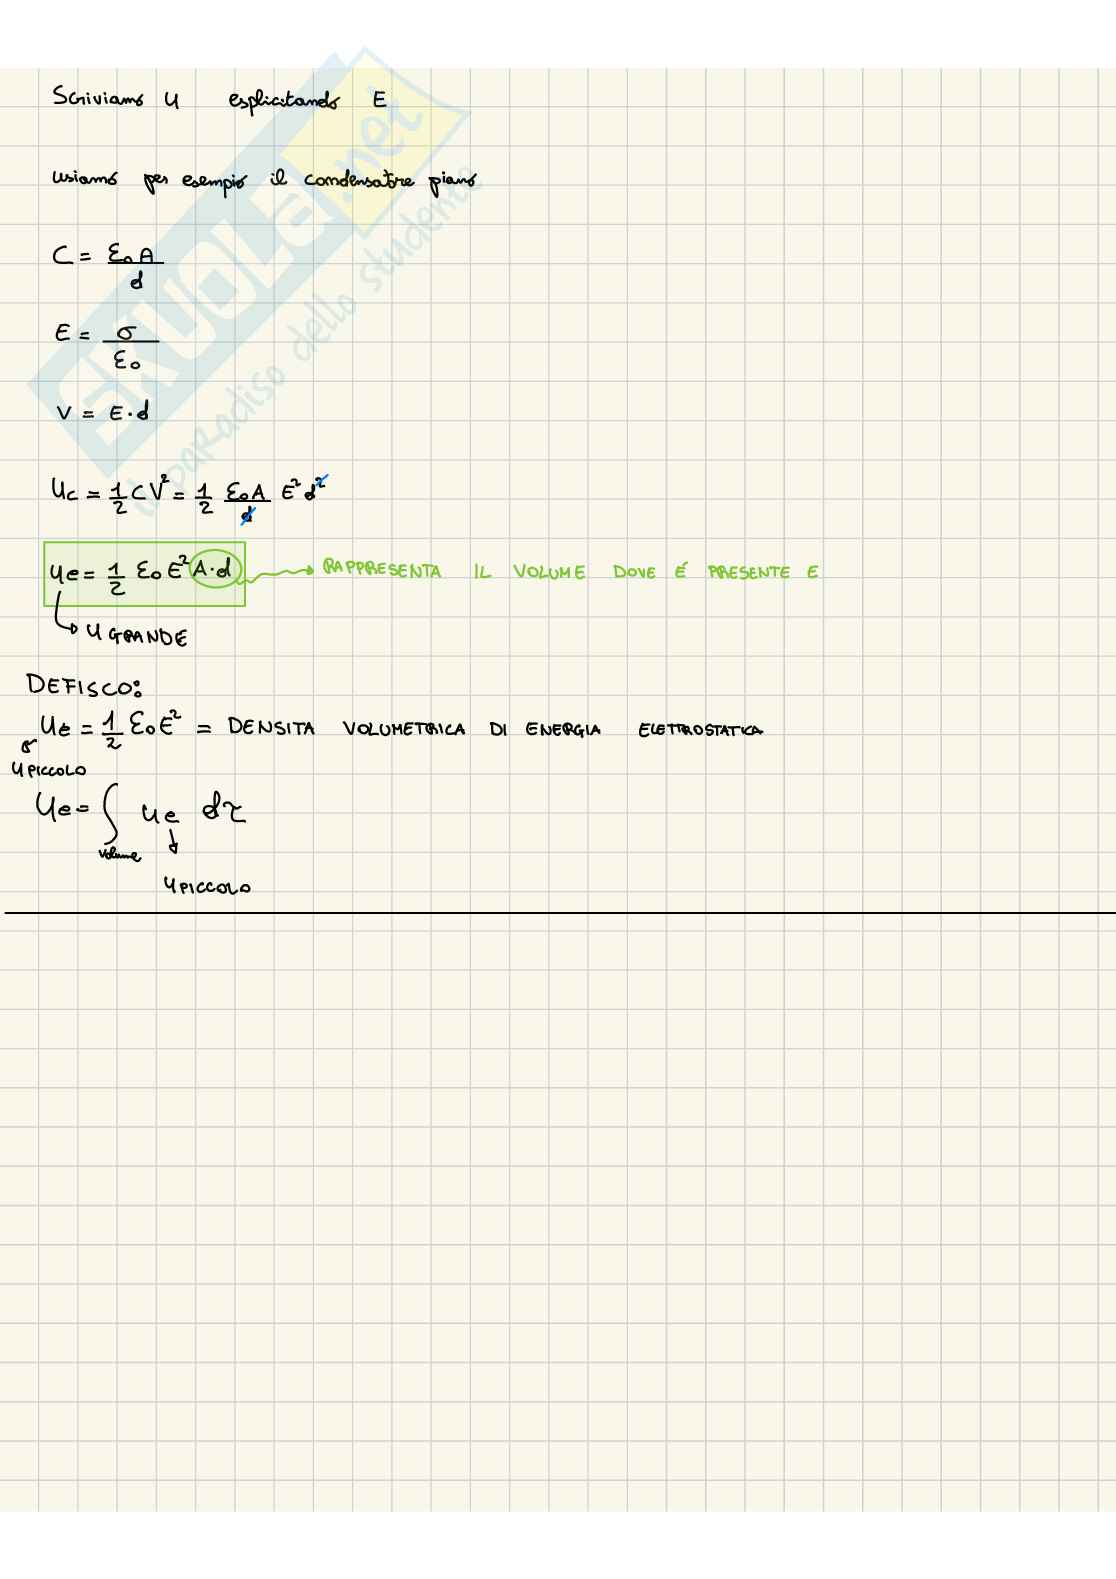 Scriviamo U esplicitando E
usiamo per esempio il condensatore piano
C = ε₀A / d
E = σ / ε₀
V = E·d
Uc = 1/2 CV² = 1/2 ε₀A/d E² d²
Ue = 1/2 ε₀ E² A·d → RAPPRESENTA IL VOLUME DOVE É PRESENTE E
↳ U GRANDE
DEFISCO:
ue = 1/2 ε₀E² = DENSITA VOLUMETRICA DI ENERGIA ELETTROSTATICA
U PICCOLO
Ue = ∫volume ue dτ
U PICCOLO
SKUOLA.net
il paradiso dello studente